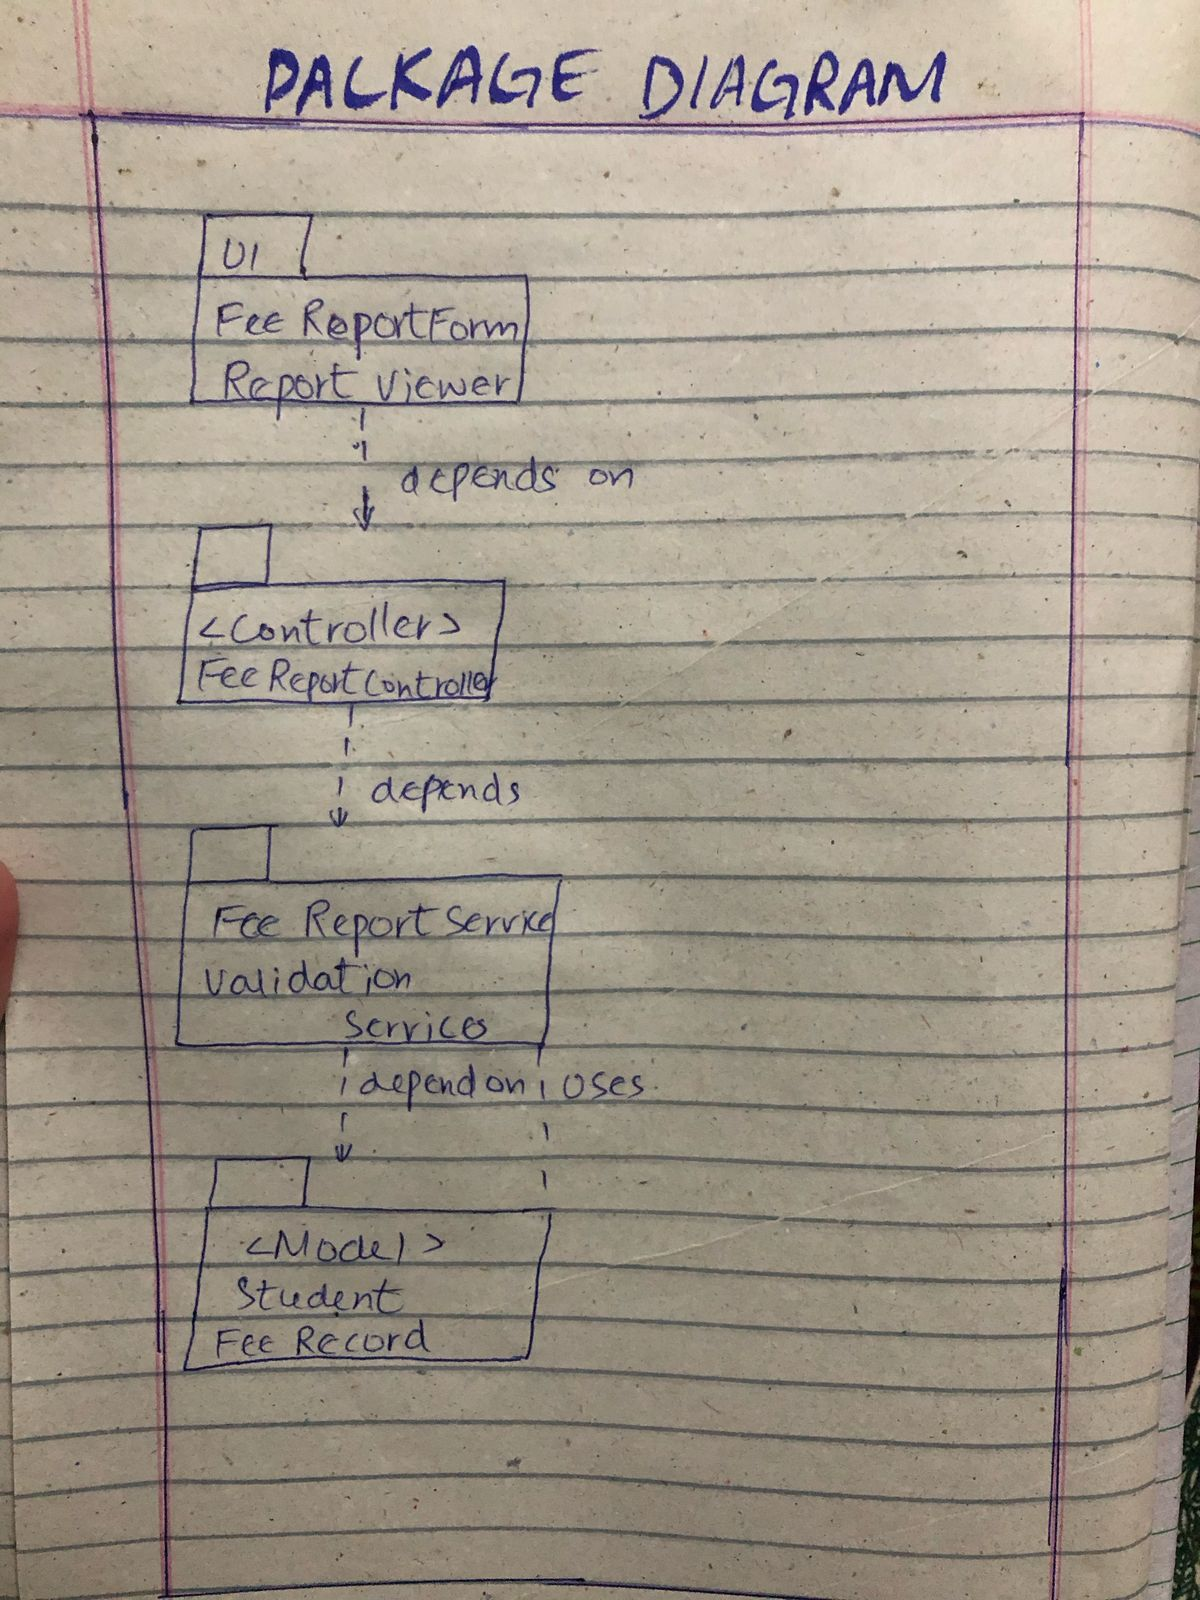 PACKAGE DIAGRAM
UI
Fee ReportForm
Report Viewer
depends on
<Controller>
Fee Report Controller
depends
Fee Report Service
Validation
Service
depend on uses
<Model>
Student
Fee Record